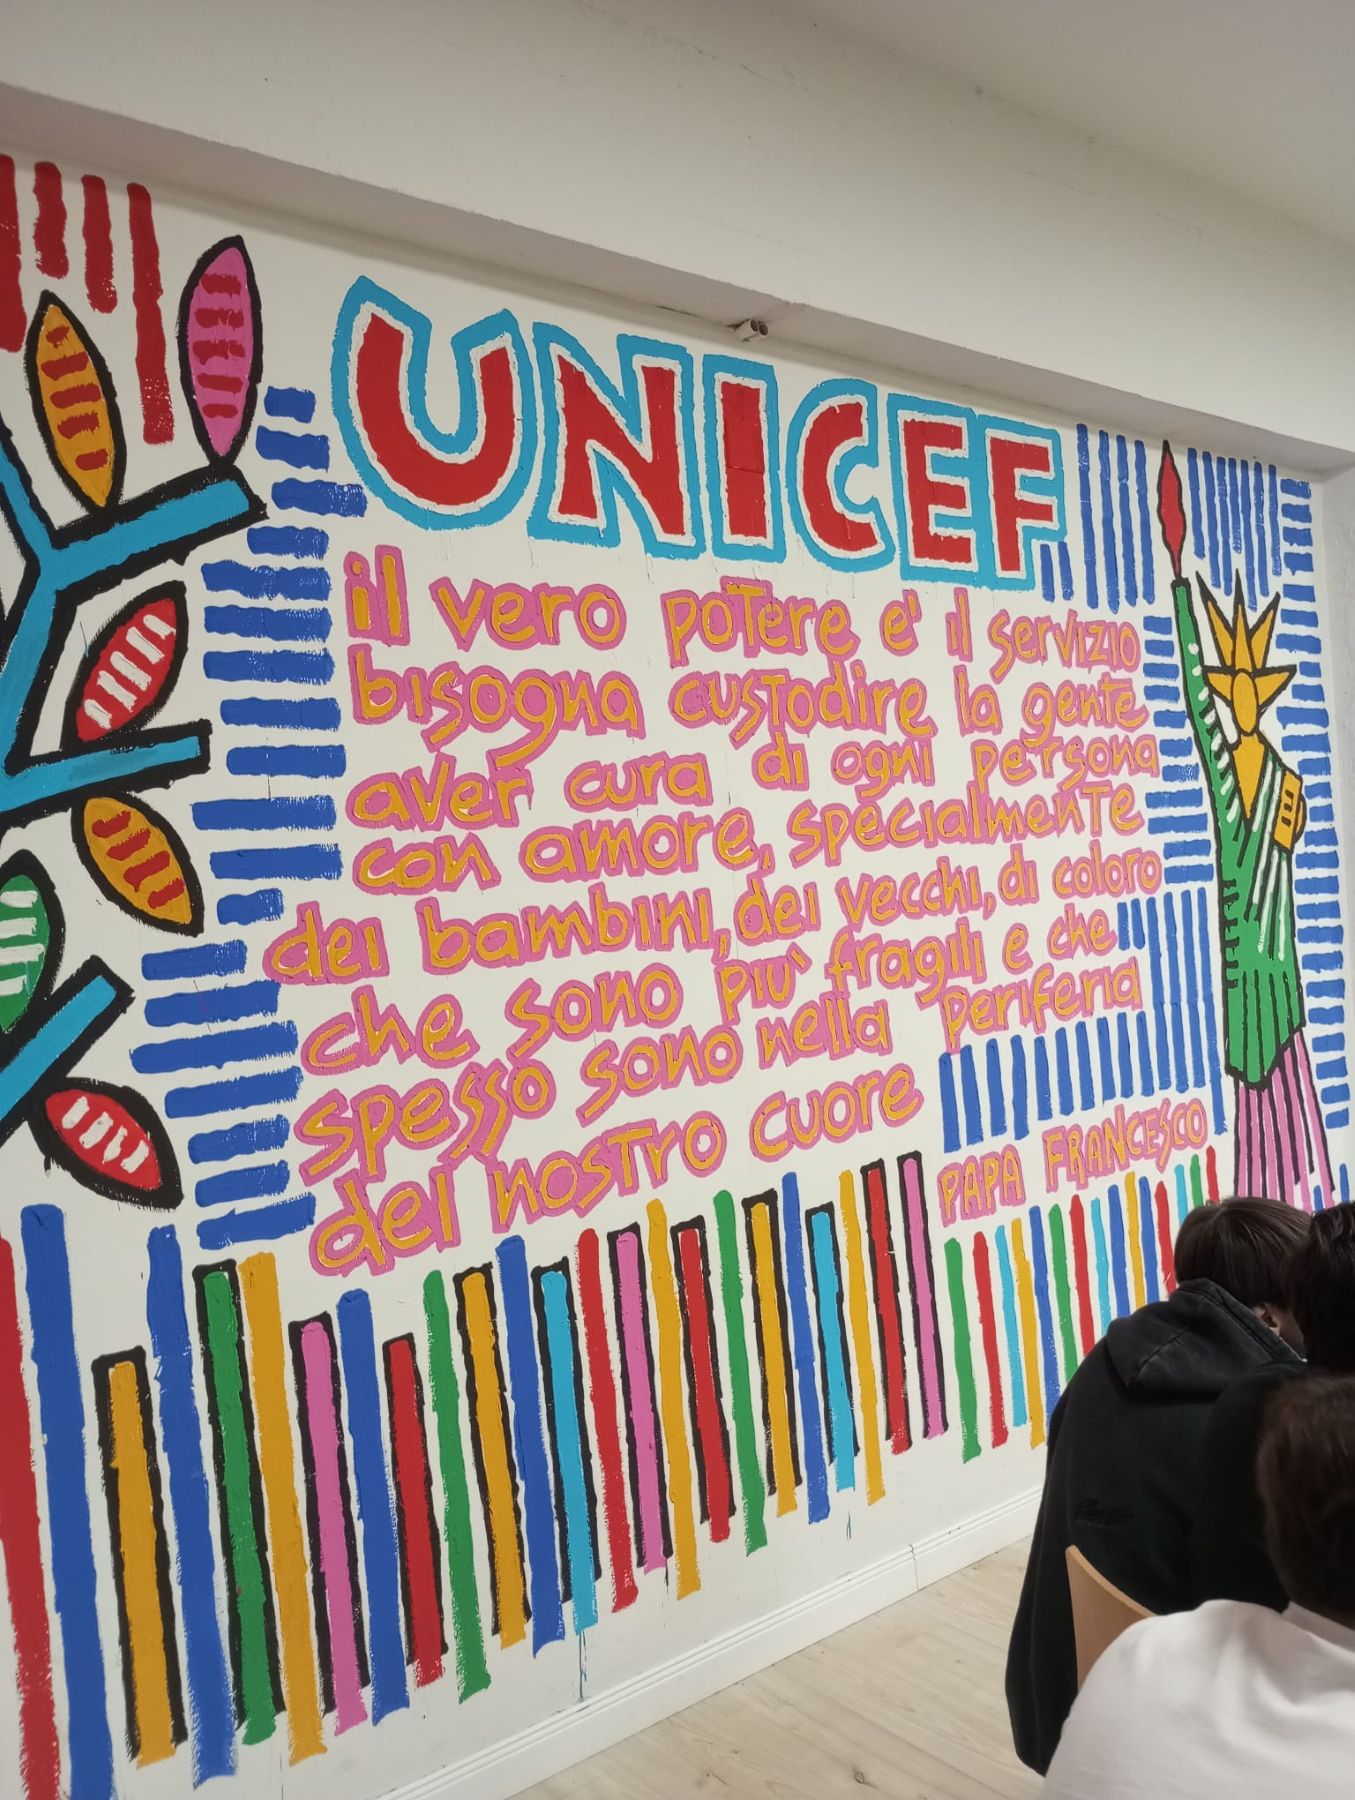 UNICEF
il vero poTere e' il servizio
bisogna cusTodire la genTe
aver cura di ogni persona
con amore, specialmenTe
dei bambini, dei vecchi, di coloro
che sono più fragili e che
spesso sono nella periferia
del nosTro cuore
PAPA FRANCESCO